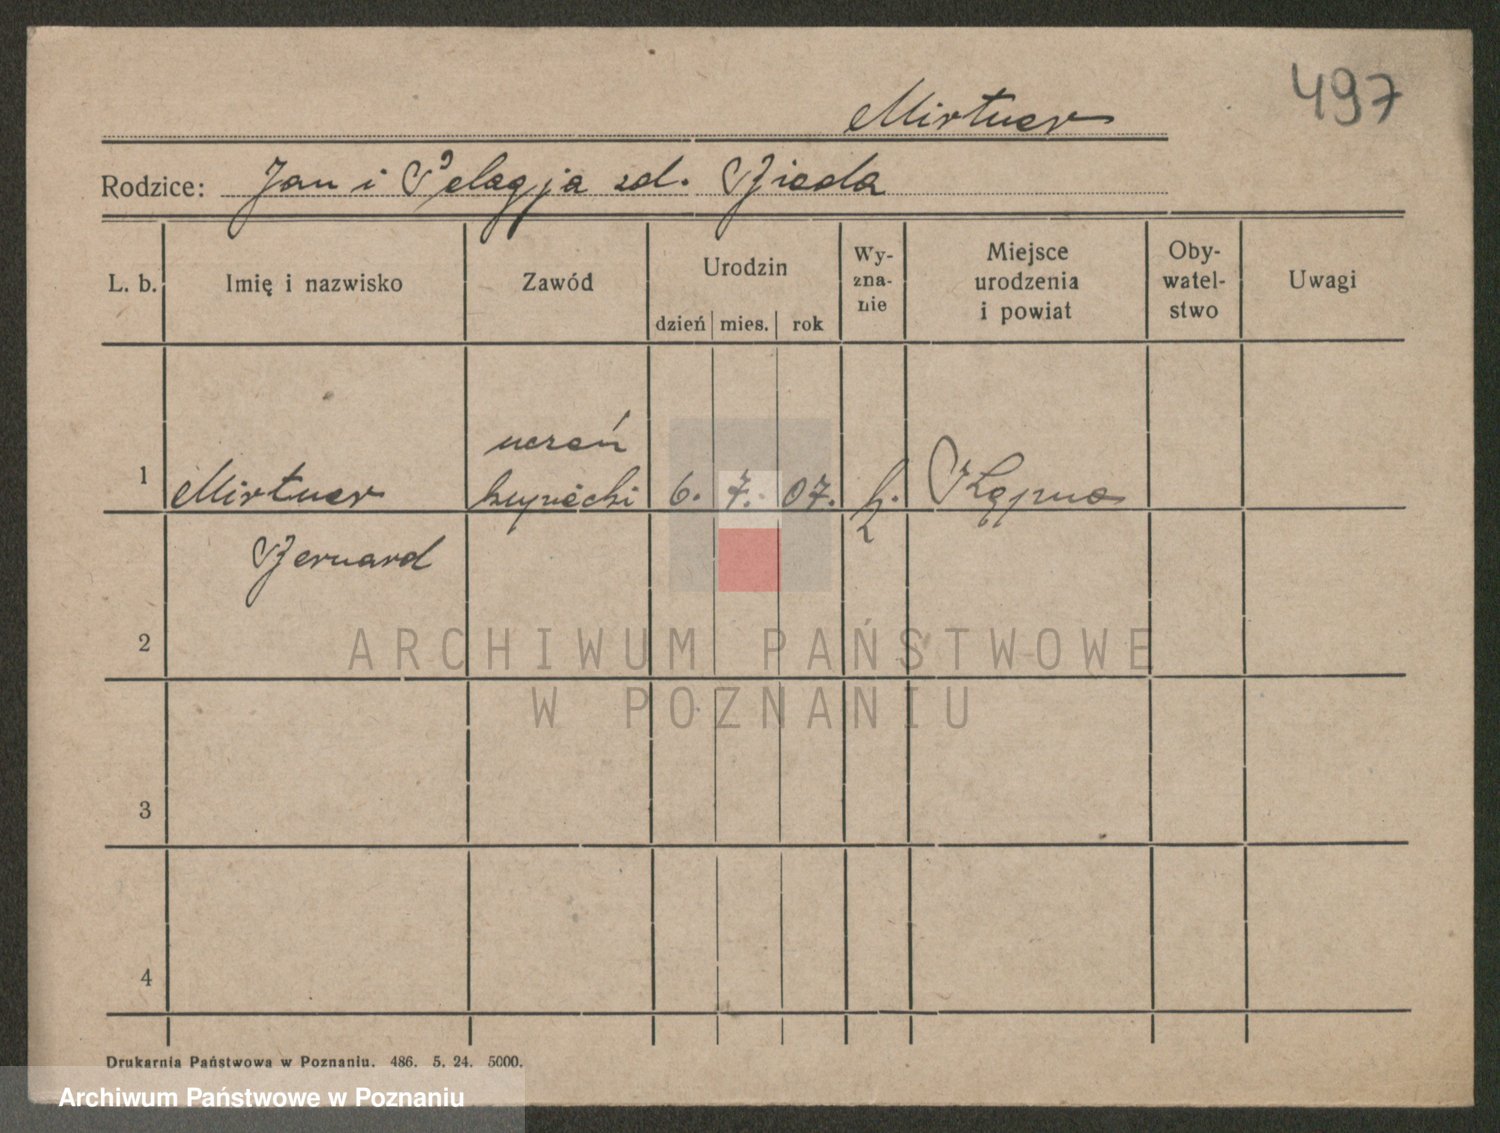 497
Mirtner
Rodzice: Jan i Pelagja zd. Bieda
L. b.
Imię i nazwisko
Zawód
Urodzin
dzień mies. rok
Wy-
zna-
nie
Miejsce
urodzenia
i powiat
Oby-
watel-
stwo
Uwagi
uczeń
1 Mirtner kupiecki 6. 7. 07. k.
Bernard
2
3
4
ARCHIWUM PAŃSTWOWE
W POZNANIU
Drukarnia Państwowa w Poznaniu. 486. 5. 24. 5000.
Archiwum Państwowe w Poznaniu